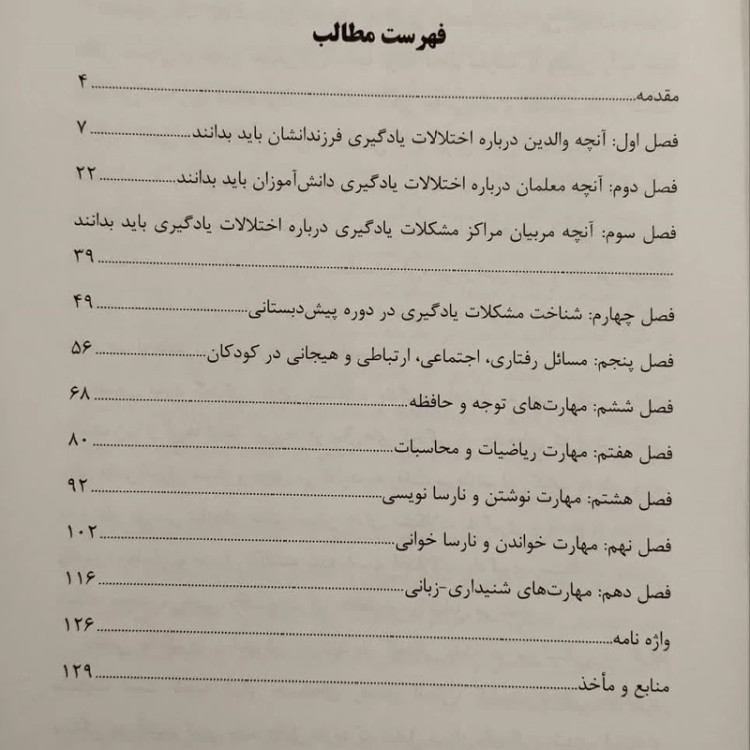 فهرست مطالب
مقدمه........................................ ۴
فصل اول: آنچه والدین درباره اختلالات یادگیری فرزندانشان باید بدانند.................... ۷
فصل دوم: آنچه معلمان درباره اختلالات یادگیری دانش‌آموزان باید بدانند.................... ۲۲
فصل سوم: آنچه مربیان مراکز مشکلات یادگیری درباره اختلالات یادگیری باید بدانند
........................................ ۳۹
فصل چهارم: شناخت مشکلات یادگیری در دوره پیش‌دبستانی.................... ۴۹
فصل پنجم: مسائل رفتاری، اجتماعی، ارتباطی و هیجانی در کودکان.................... ۵۶
فصل ششم: مهارت‌های توجه و حافظه.................... ۶۸
فصل هفتم: مهارت ریاضیات و محاسبات.................... ۸۰
فصل هشتم: مهارت نوشتن و نارسا نویسی.................... ۹۲
فصل نهم: مهارت خواندن و نارسا خوانی.................... ۱۰۲
فصل دهم: مهارت‌های شنیداری-زبانی.................... ۱۱۶
واژه نامه........................................ ۱۲۶
منابع و مأخذ........................................ ۱۲۹